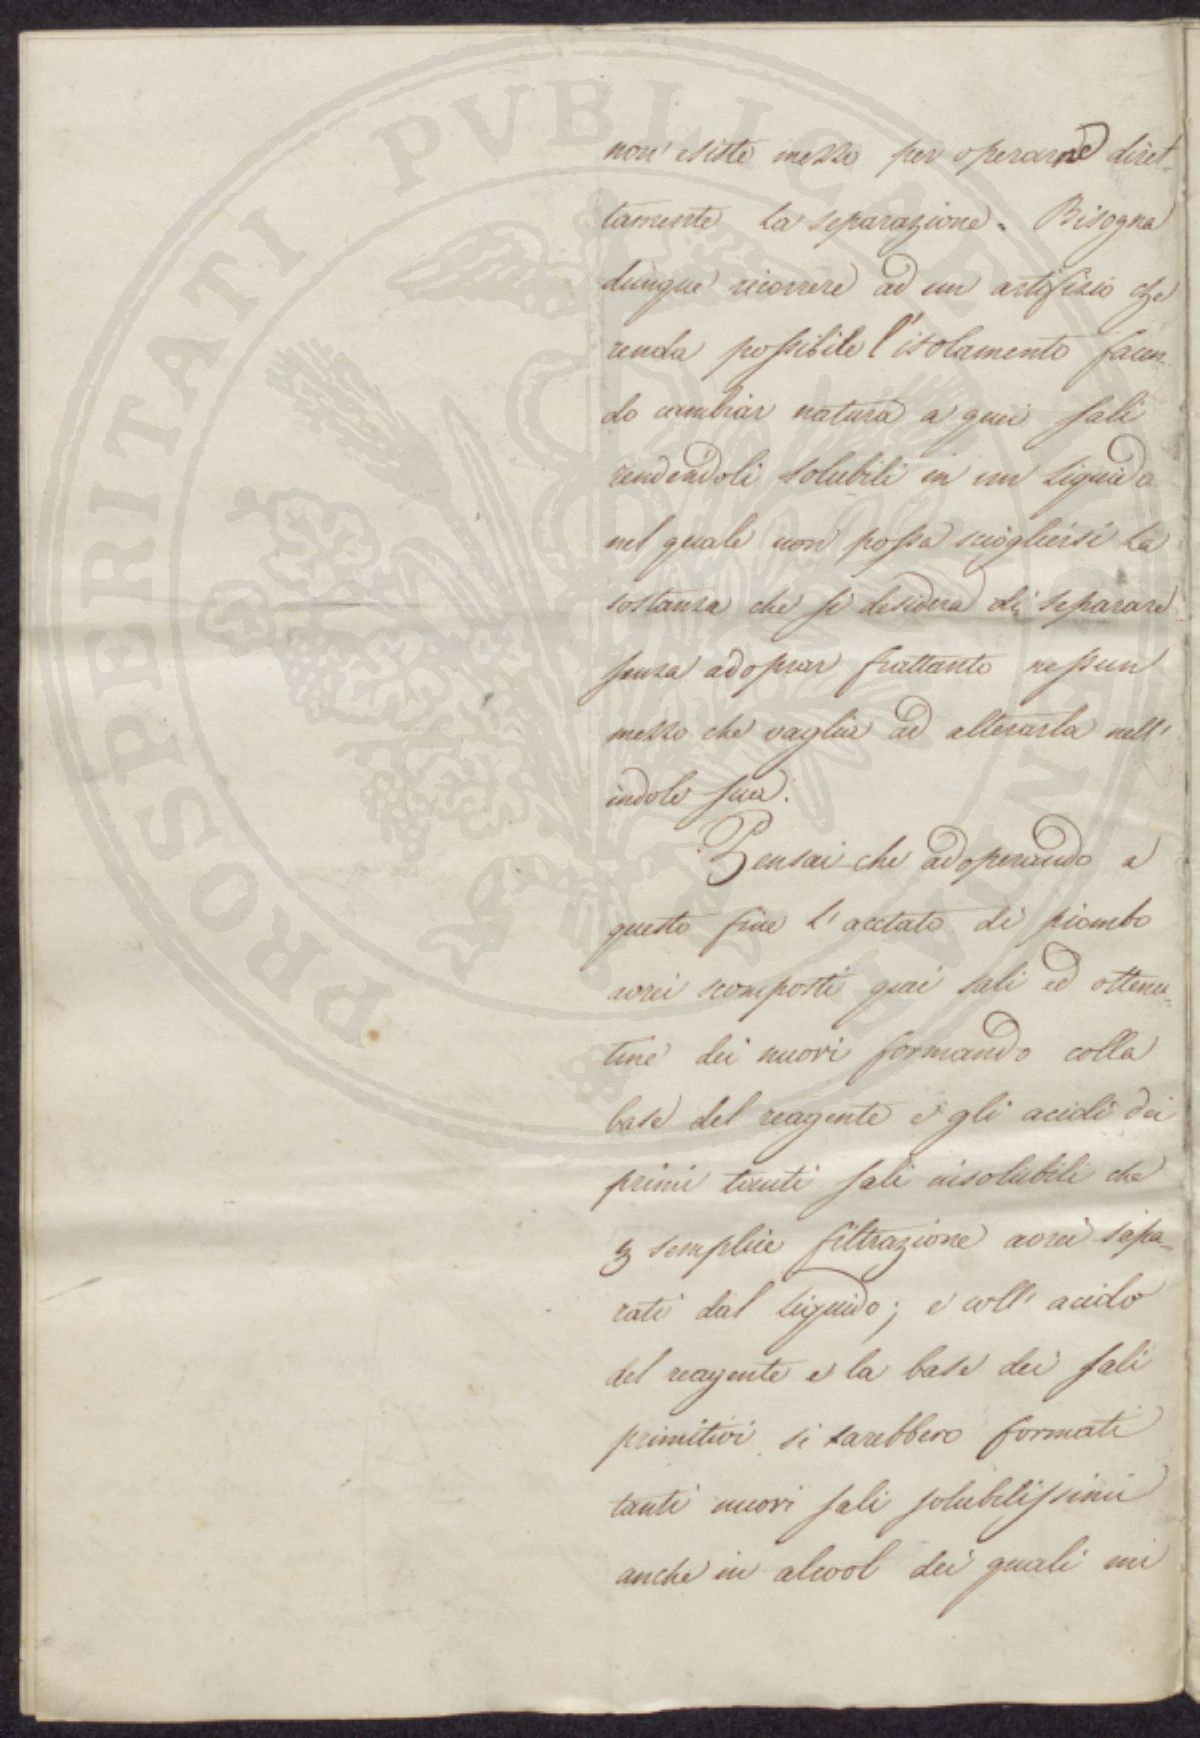 PROSPERITATI PVBLICAE AVGENDAE
non esiste mezzo per operarne diret-
tamente la separazione. Bisogna
dunque ricorrere ad un artifizio che
renda possibile l'isolamento facen-
do cambiar natura a quei sali
rendendoli solubili in un liquido
nel quale non possa sciogliersi la
sostanza che si desidera di separare
senza adoprar frattanto nessun
mezzo che vaglia ad alterarla nell'
indole sua.
Pensai che adoperando a
questo fine l'acetato di piombo
avrei scomposti quei sali ed ottenu-
tine dei nuovi formando colla
base del reagente e gli acidi dei
primi tanti sali insolubili che
semplice filtrazione avrei sepa-
rati dal liquido; e coll'acido
del reagente e la base dei sali
primitivi si sarebbero formati
tanti nuovi sali solubilissimi
anche in alcool dei quali mi